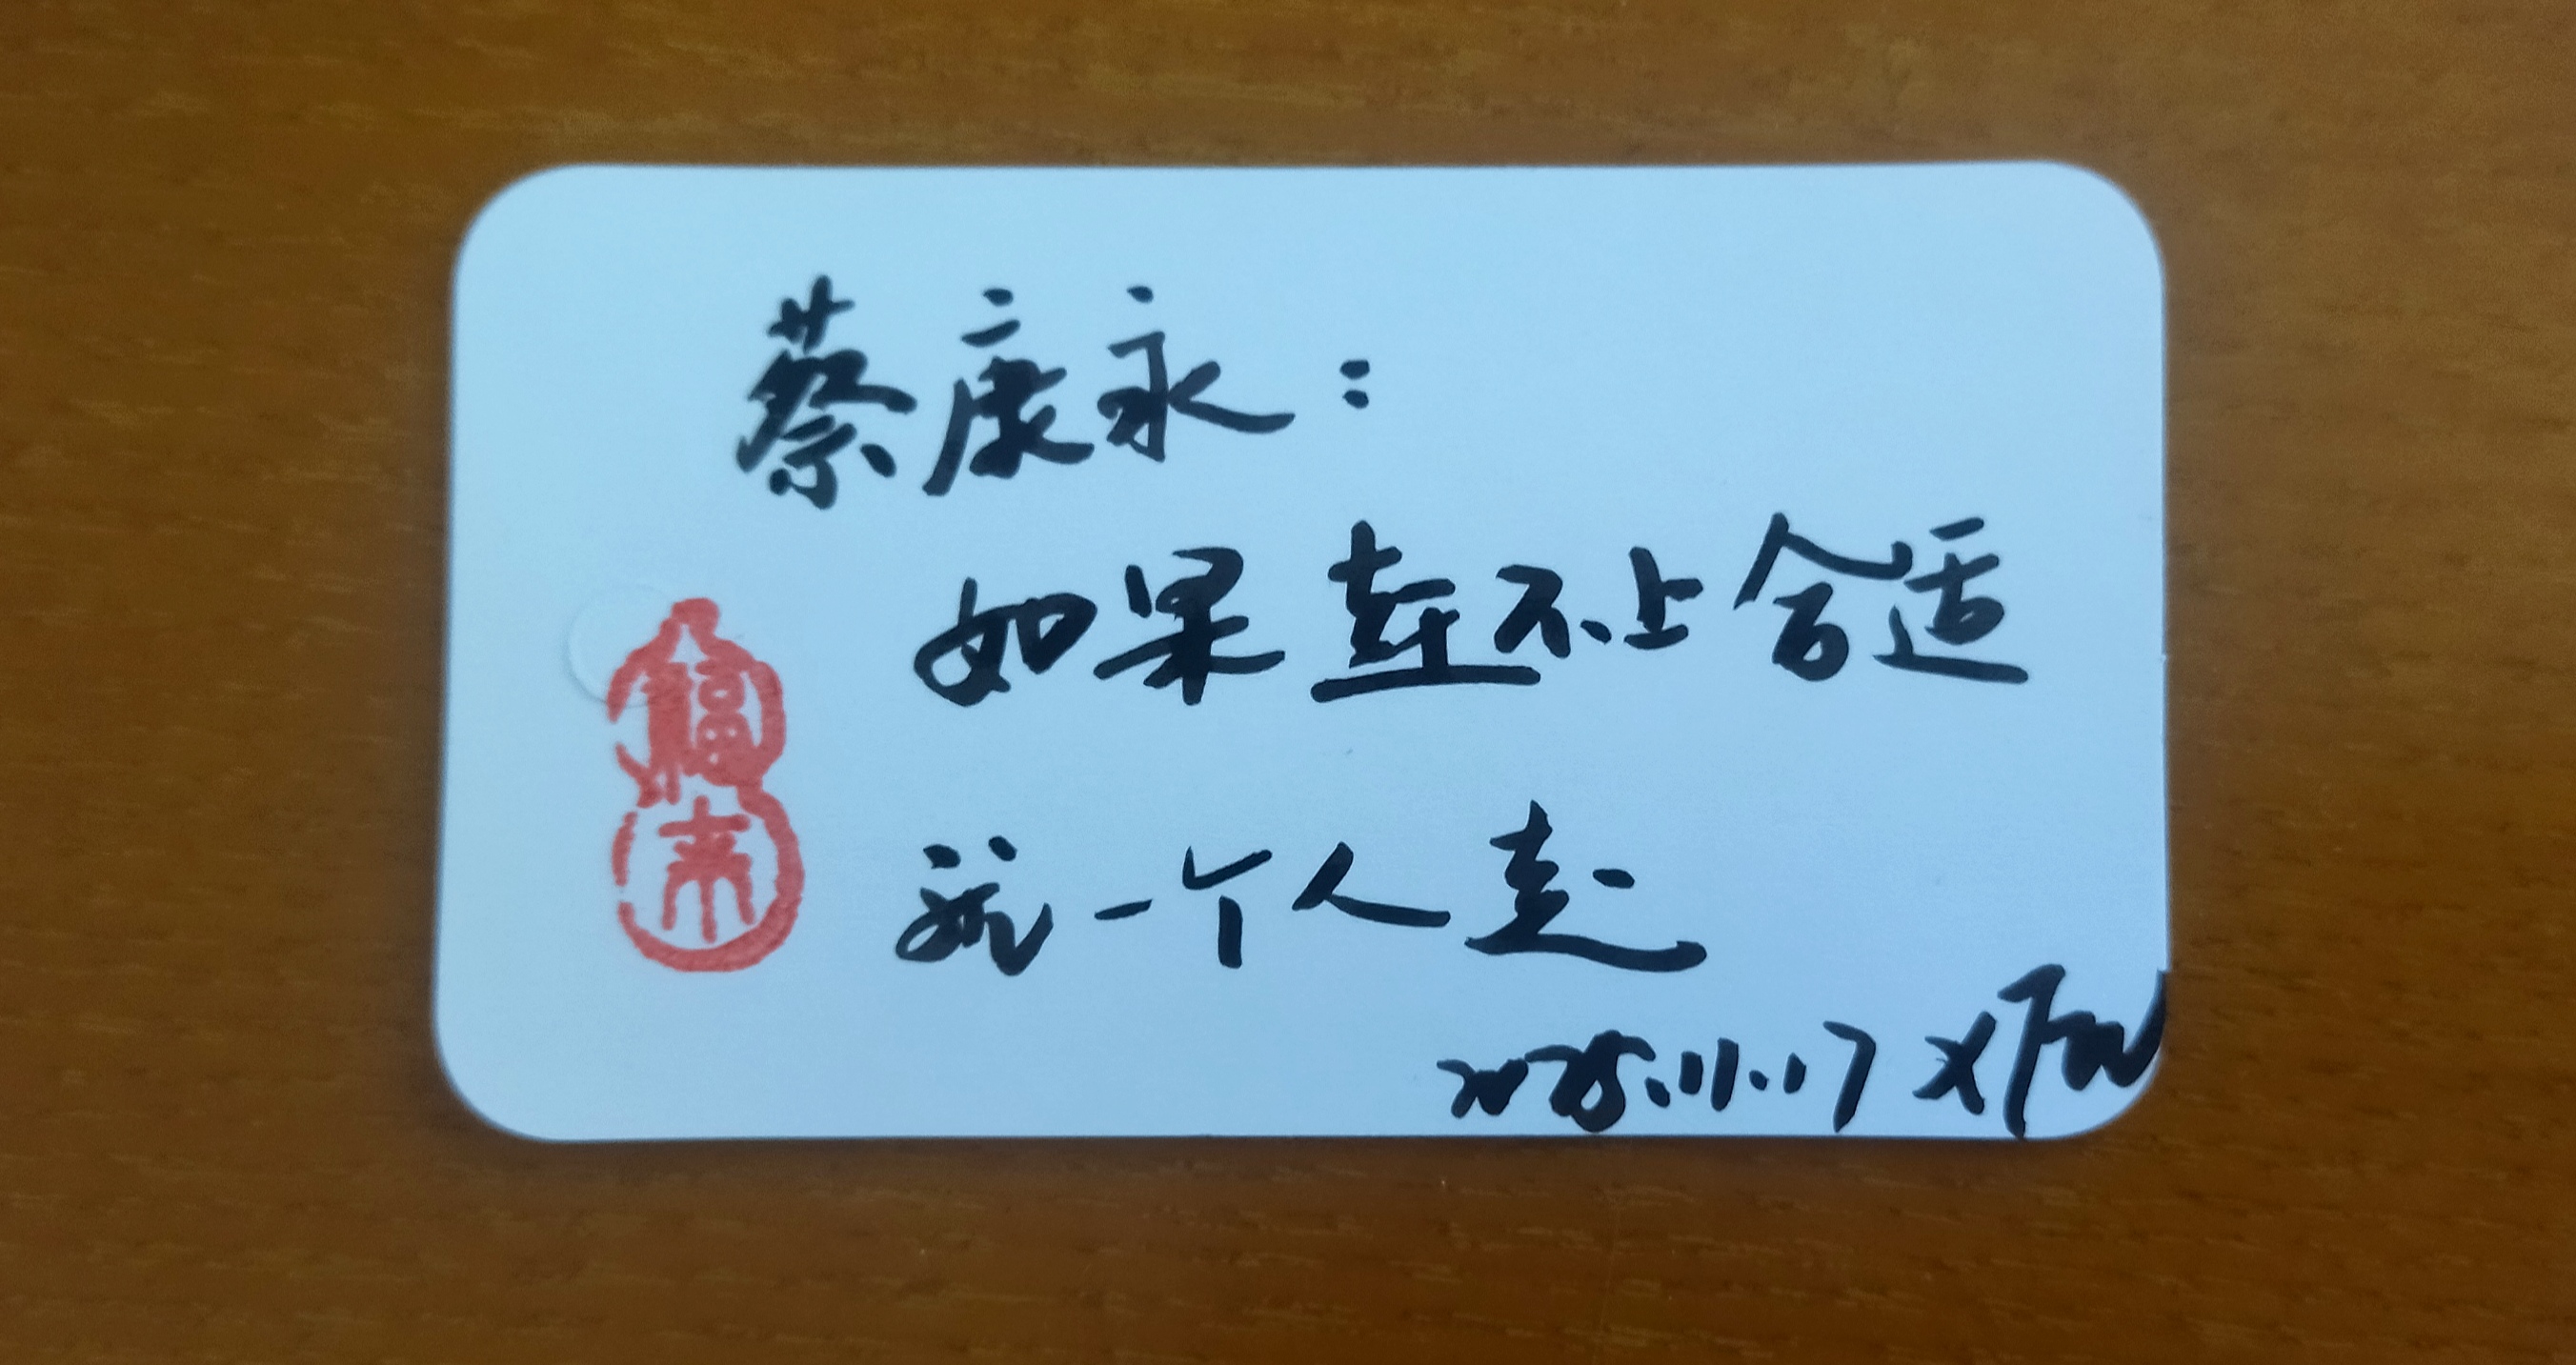 蔡康永：
如果走不上合适
就一个人走
2025.11.17
福来